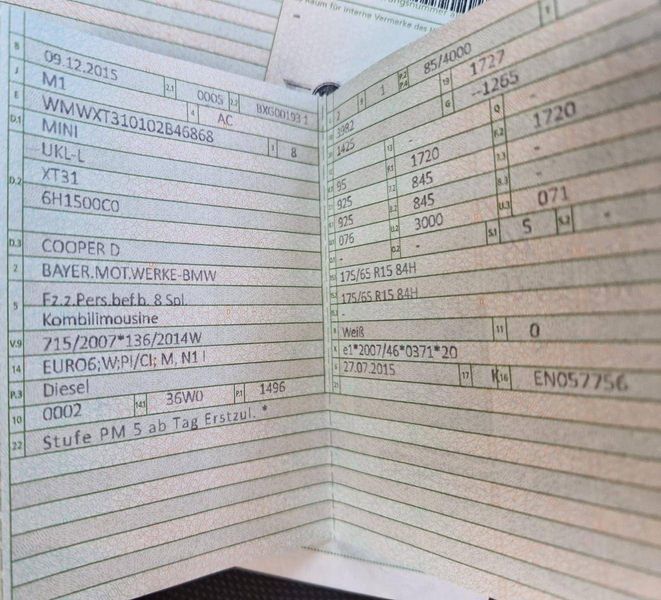 Raum für interne Vermerke des
B 09.12.2015 2.1 0005 2.2
J M1 4 AC
E WMWXT310102B46868 3 8
D.1 MINI
UKL-L
D.2 XT31
6H1500C0
D.3 COOPER D
2 BAYER.MOT.WERKE-BMW
5 Fz.z.Pers.bef.b. 8 Spl.
Kombilimousine
V.9 715/2007*136/2014W
14 EURO6;W:PI/CI; M, N1 I
P.3 Diesel
10 0002 14.1 36W0 P.1 1496
22 Stufe PM 5 ab Tag Erstzul. *
1 P.2 P.4 85/4000
3982 19 1727
1425 - G --1265
95 - Q -
925 1720 F.2 1720
925 845 7.3 -
076 845 8.3 -
- U.2 3000 U.3 071
O.2 - S.1 5 S.2 -
175/65 R15 84H
175/65 R15 84H
-
R Weiß 11 0
K e1*2007/46*0371*20
6 27.07.2015 17 K 16 EN057756
21